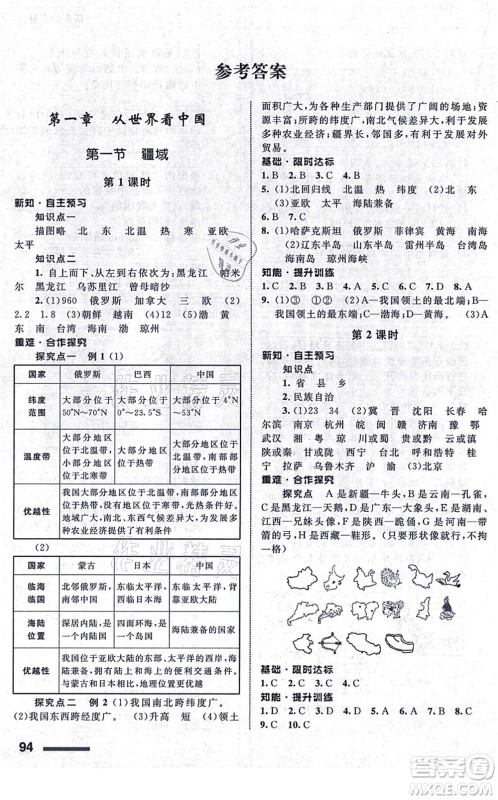 参考答案
第一章 从世界看中国
第一节 疆域
第1课时
新知·自主预习
知识点一
描图略 北 东 北温 热 寒 亚欧
太平
知识点二
1.自上而下,从左向右依次为:黑龙江 帕米
尔 黑龙江 乌苏里江 曾母暗沙
2.(1)960 俄罗斯 加拿大 三 欧 (2)
2.2 1.8 (3)朝鲜 越南 (4)渤 黄
东 南 台湾 渤 琼州
重难·合作探究
探究点一 例1 (1)
国家 俄罗斯 巴西 中国
纬度范围 大部分位于50°N~70°N 大部分位于0°~23.5°S 大部分位于4°N~53°N
温度带 大部分地区位于北温带,小部分地区位于北寒带 大部分地区位于热带 大部分地区位于北温带,小部分地区位于热带
优越性 我国大部分地区位于北温带,南北跨纬度广,南、东西气候差异大,为发展农业提供了有利条件
(2)
国家 蒙古 日本 中国
临海临国 北邻俄罗斯,南邻中国 东临太平洋,西临日本海 东临太平洋,陆上邻国众多
海陆位置 深居内陆,是一个内陆国 四面临海,是一个岛国 海陆兼备的国家
优越性 我国位于亚欧大陆的东部、太平洋的西岸,与蒙古和日本相比,地理位置更加优越
探究点二 例2 (1)我国南北跨纬度广。
(2)我国东西跨经度广。 (3)升高 短 (4)领土
94
面积广大,为各种生产部门提供了广阔的场地;资
源丰富;广大的地域,南北气候差异大,有利于发展
多种农业经济;疆界长,邻国众多,有利于对外
贸易。
基础·限时达标
1.B 2.B 3.C 4.B
5.(1)北回归线 北温 热 纬度 (2)北 (3)
太平洋 印度洋 海陆兼备
6.C 7.B
8.(1)哈萨克斯坦 俄罗斯 菲律宾 黄海 南海
(2)辽东半岛 山东半岛 (3)台湾岛 台湾海峡
海南岛
知能·提升训练
9.(1)③ ①② (2)A—我国领土的最北端;B—
我国领土的最东端;D—黄海。
第2课时
新知·自主预习
知识点
1.省 县 乡
2.民族自治
3.(1)23 34 (2)冀 晋 沈阳 长春 哈
尔滨 南京 杭州 皖 闽 南昌 鲁 豫 鄂
武汉 湘 广州 粤 琼 川 成都 贵阳 云(滇)
昆明 陕 兰州 西宁 台 呼和浩特 桂
宁 拉萨 乌鲁木齐 沪 渝 北京
重难·合作探究
探究点 A是新疆—牛头,B是内蒙古—老鹰,
C是黑龙江—天鹅,D是广东—大象,E是湖南、
江西—一对姊妹像,F是陕西—跪俑,G是青海—
兔子,H是云南—开屏的孔雀,I是甘肃、宁夏—一
张带箭的弓,J是西藏—鞋形。(只要形状像就可
以,答案不唯一)
基础·限时达标
1.B 2.C 3.D 4.A 5.D 6.B
知能·提升训练
9.C 10.C